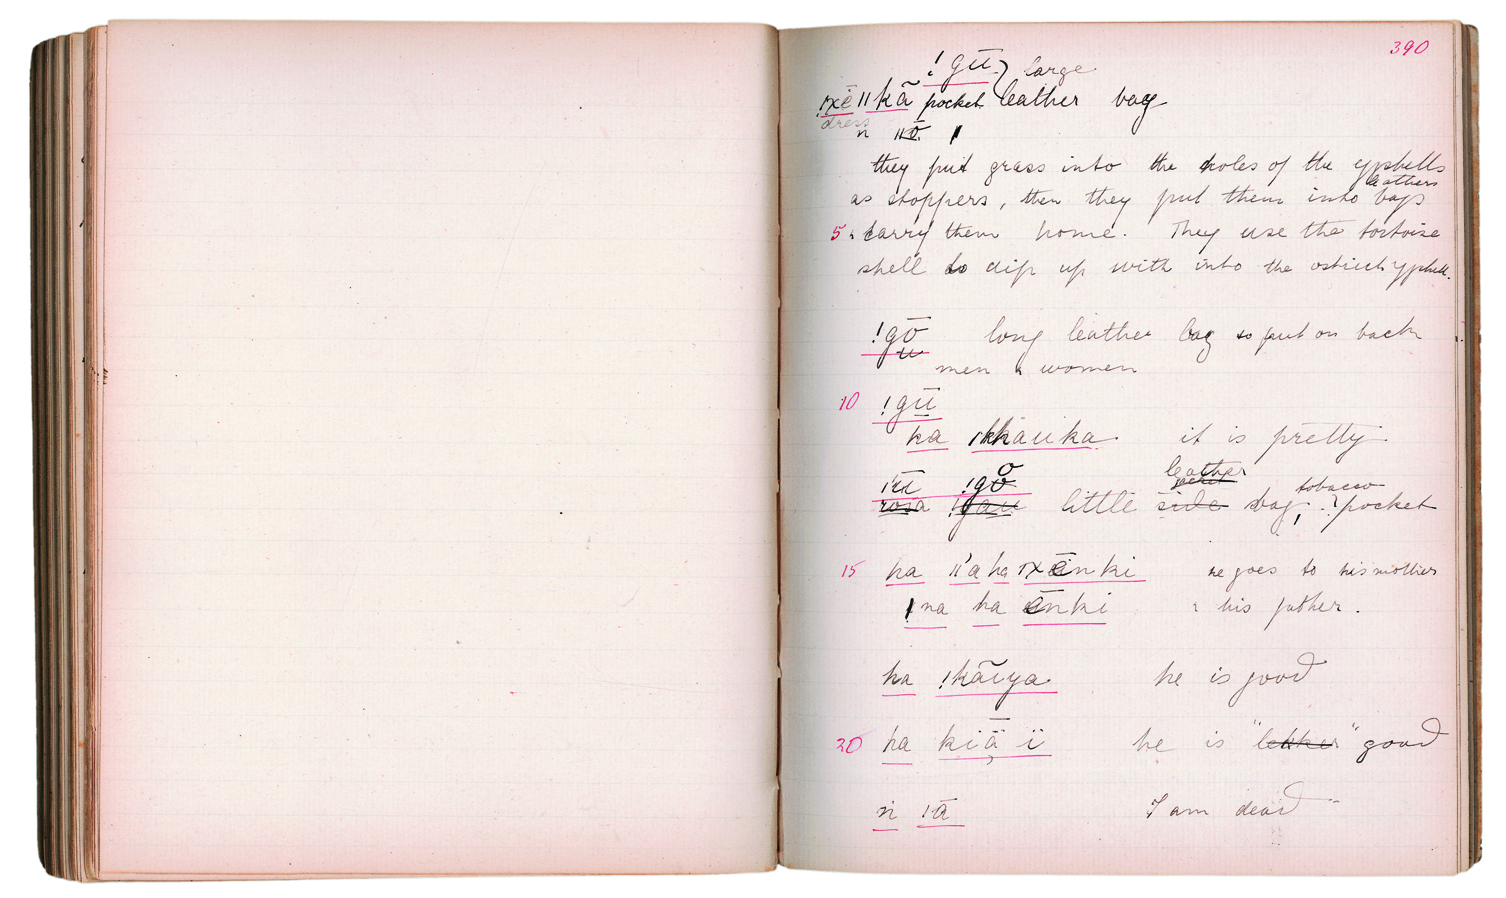 390
!gū } large
ǀxē ǁkã pocket leather bag
dress
n ǁō ǀ
they put grass into the holes of the
leathers
as stoppers, then they put them into bags
5 carry them home. They use the tortoise
shell to dip up with into the ostrich
!gō long leather bag to put on back
u
men & women
10 !gū
ka ǀkhauka it is pretty
leather
!gō tobacco
rosa !gau little side bag, ? pocket
15 ha ǁ'a ha ǀxēnki he goes to his mother
ǀna ha ēnki & his father.
ha !kãĩya he is good
20 ha kiā ï he is "lekker" good
ṅ ǀā I am dead